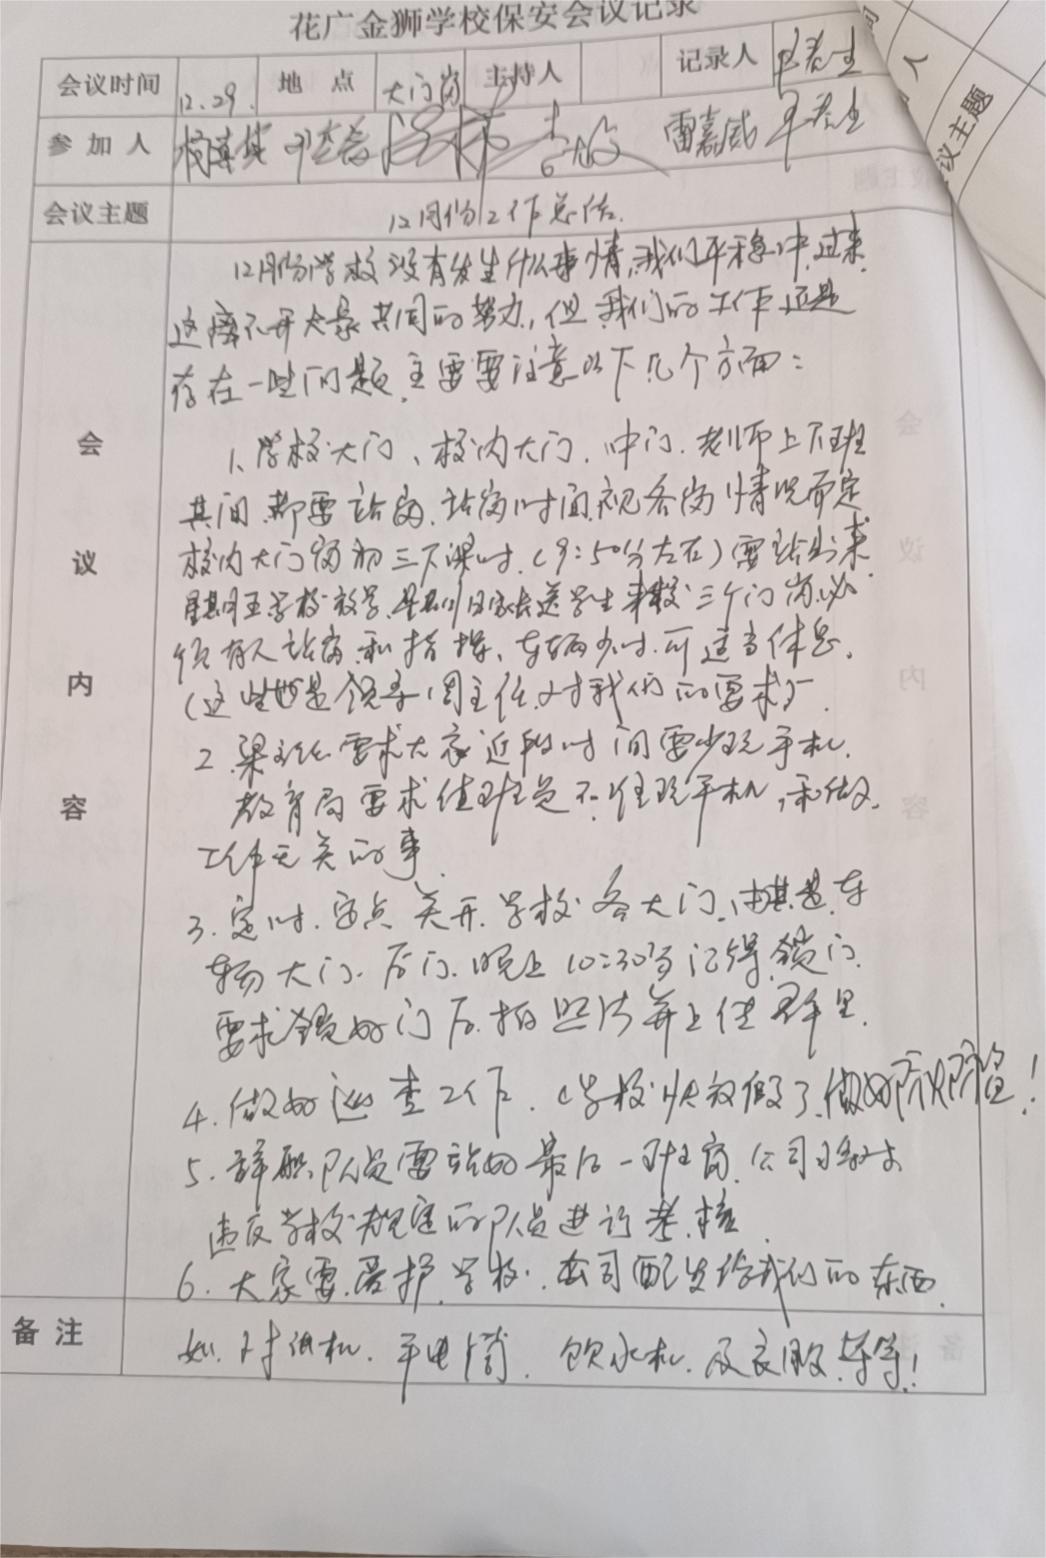 花广金狮学校保安会议记录
会议时间 12.29. 地点 大门岗 主持人 记录人
参加人 雷嘉威
会议主题 12月份工作总结.
会议内容
12月份学校没有发生什么事情,我们平稳中过来.
这离不开大家共同的努力,但我们的工作还是
存在一些问题.主要要注意以下几个方面:
1、学校大门、校内大门.中门.老师上下班
其间.都要站岗.站岗时间.视各岗情况而定
校内大门岗初三下课时.(9:50分左右)需站出来.
星期五学校放学.星期日家长送学生来校.三个门岗.必
须有人站岗.和指挥、车辆少时.可适当休息.
(这些也是领导周主任.对我们的要求).
2 梁主任要求大家近段时间要少玩手机.
教育局要求值班员不准玩手机,和做
工作无关的事.
3.定时.定点关开.学校各大门.尤其是.车
场大门.后门.晚上10:30分记得锁门.
要求锁好门后.拍照片并上传群里.
4.做好巡查工作.(学校快放假了.做好防火防盗!
5.辞职队员需站好最后一班岗.公司将对
违反学校规定的队员进行考核.
6.大家要.爱护.学校.公司配发给我们的东西.
备注 如.对讲机.手电筒.饮水机.及衣服.等等!
人
议主题